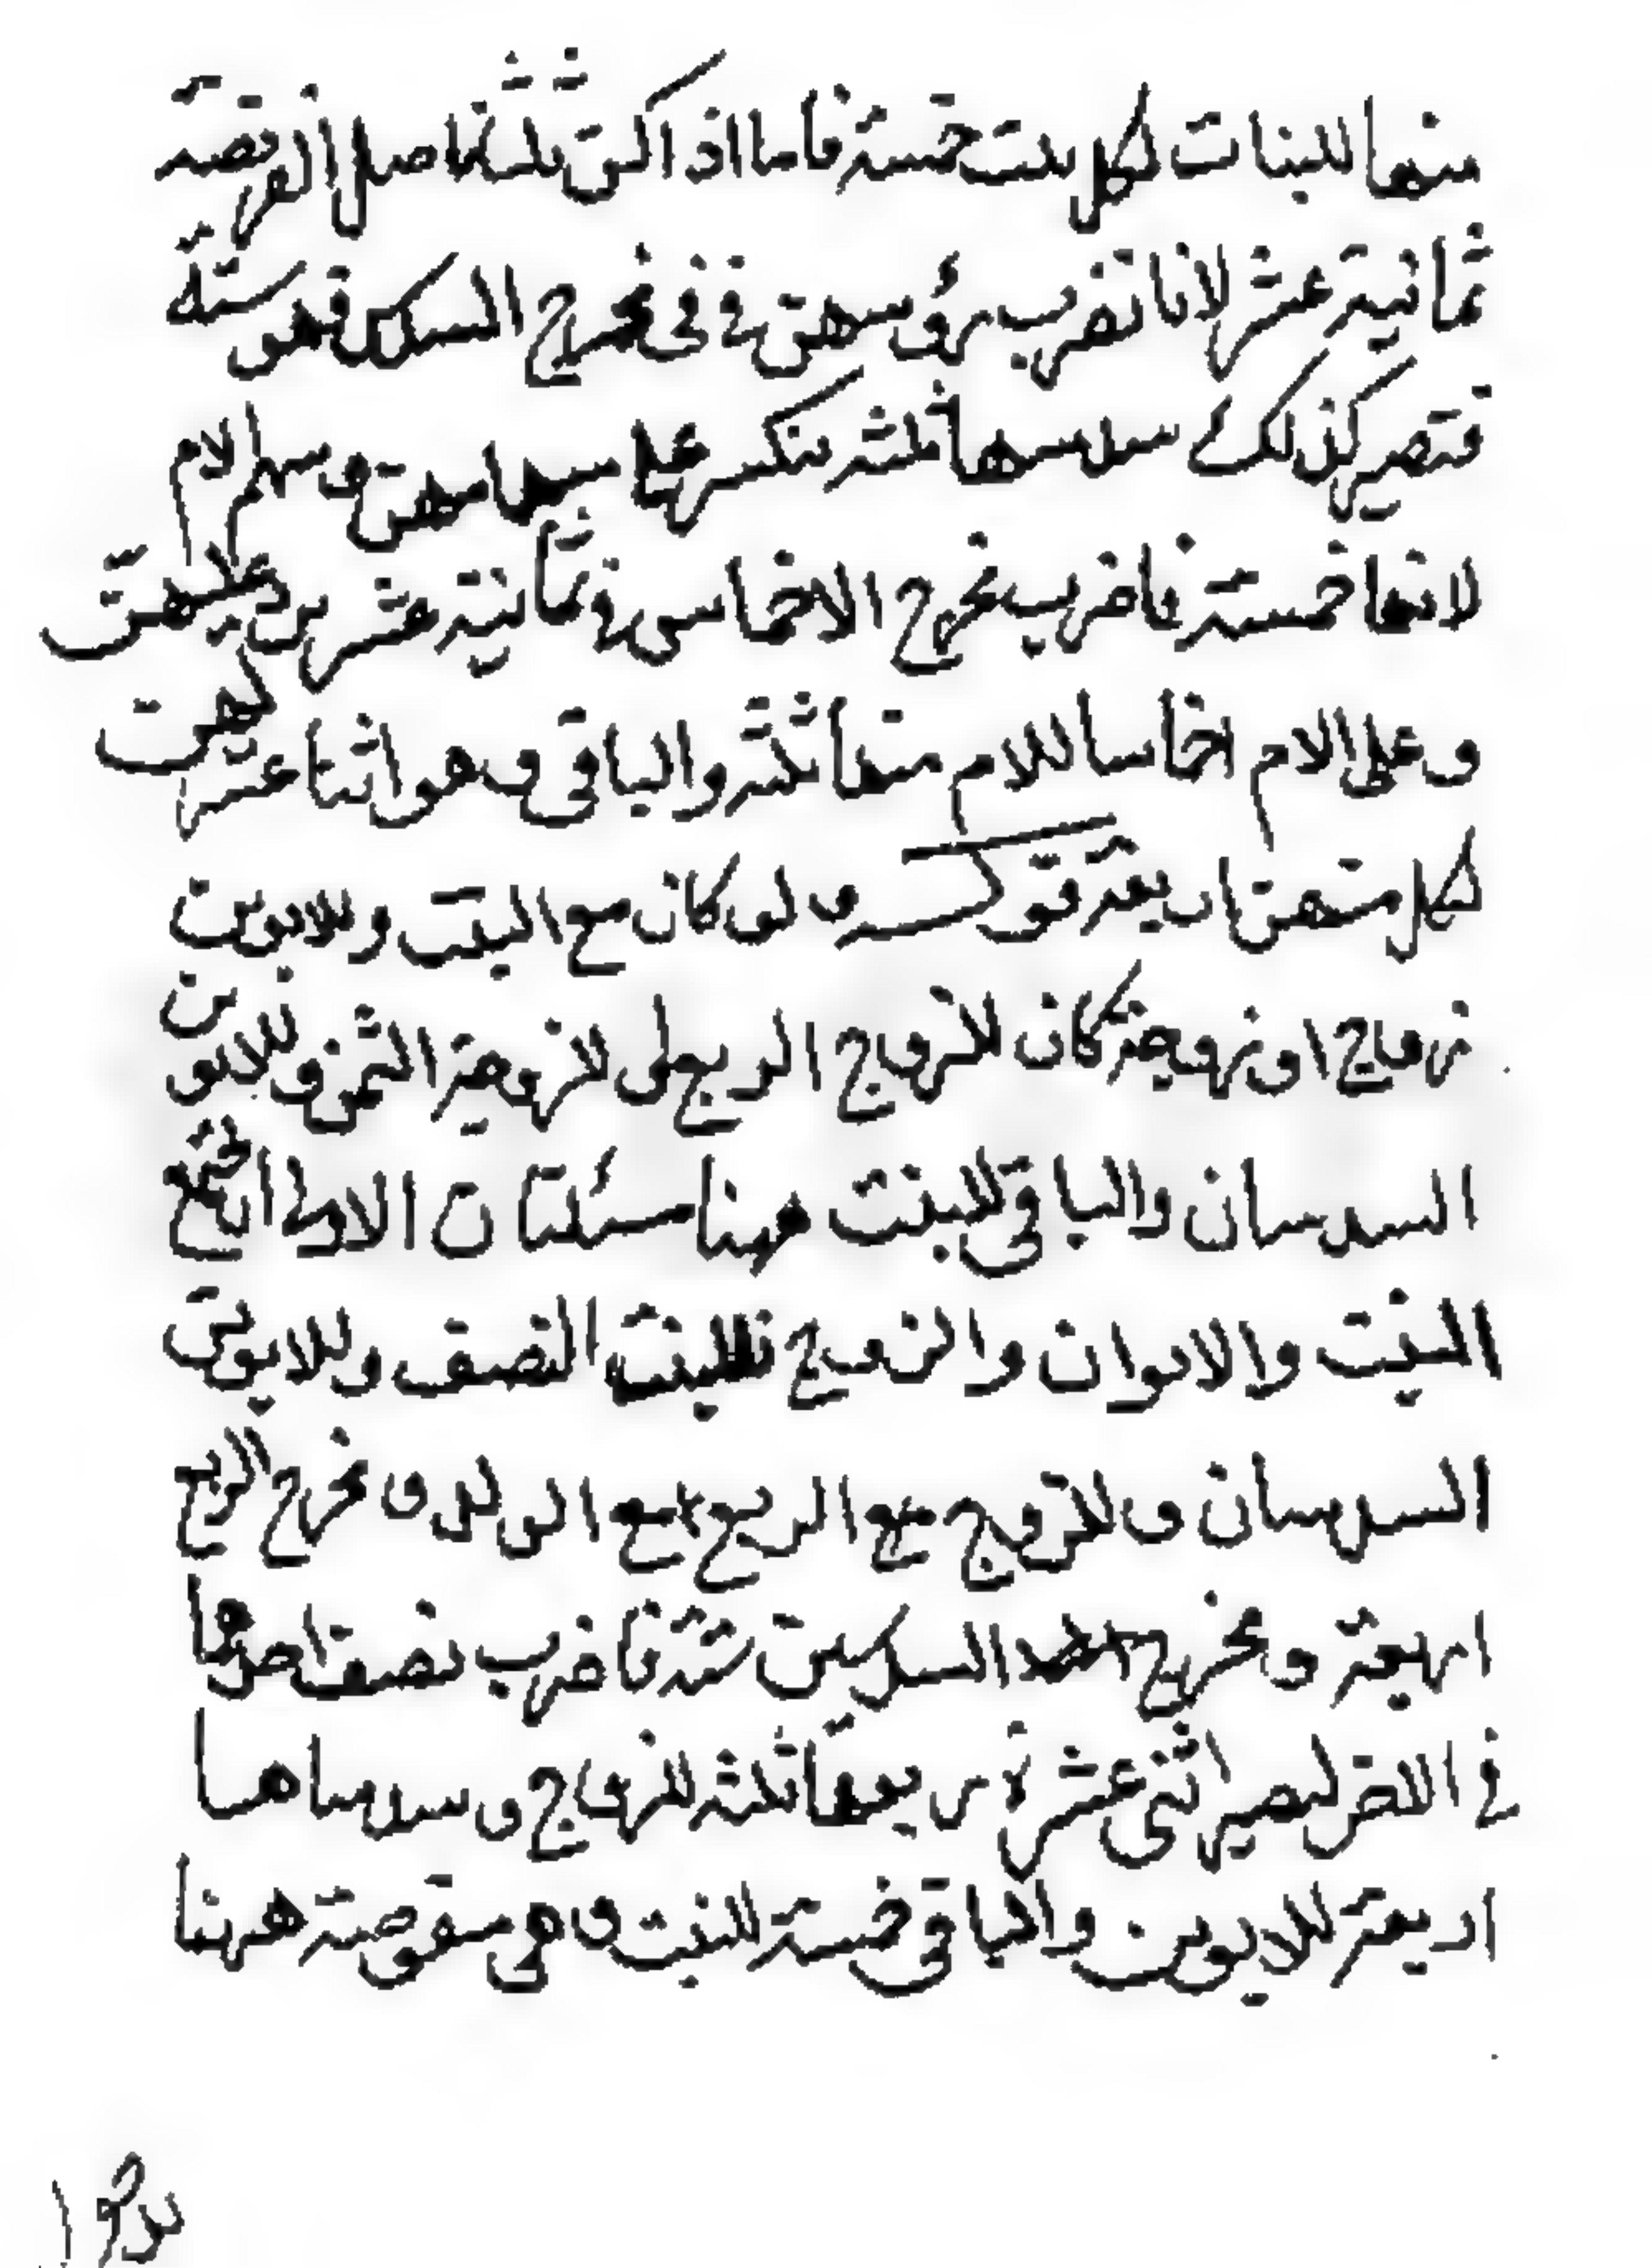 منها للبنات لكل بنت خمسة فاما اذا كن ثلثا فاصل الفريضة
ثمانية عشر لانا نضرب رؤسهن في في مخرج السدس فهو ستة
فتصير كذلك سدسها ثلثة تنكسر على سهامهن وسهم الام
لانها خمسة فاضرب مخرج الاخماس في ثمانية عشر يرد عليهن
وعلى الام اخماسا للام منها ثلثة والباقى وهو اثنا عشر لهن
لكل منهن اربعة قوله ولو كان مع البنت وللابوين
زوج او زوجة كان للزوج الربع وللزوجة الثمن وللابوين
السدسان والباقى للبنت ههنا مسئلتان الاولى اجتمع
البنت والابوان والزوج فللبنت النصف وللابوين
السدسان وللزوج مع الربع مع الولد ومخرج الربع
اربعة ومخرج السدسين ستة فاضرب نصف احدهما
في الاخر ليصير اثنى عشر ربعها ثلثة للزوج وسدساها
اربعة للابوين والباقى خمسة للبنت وهى منقوصة ههنا